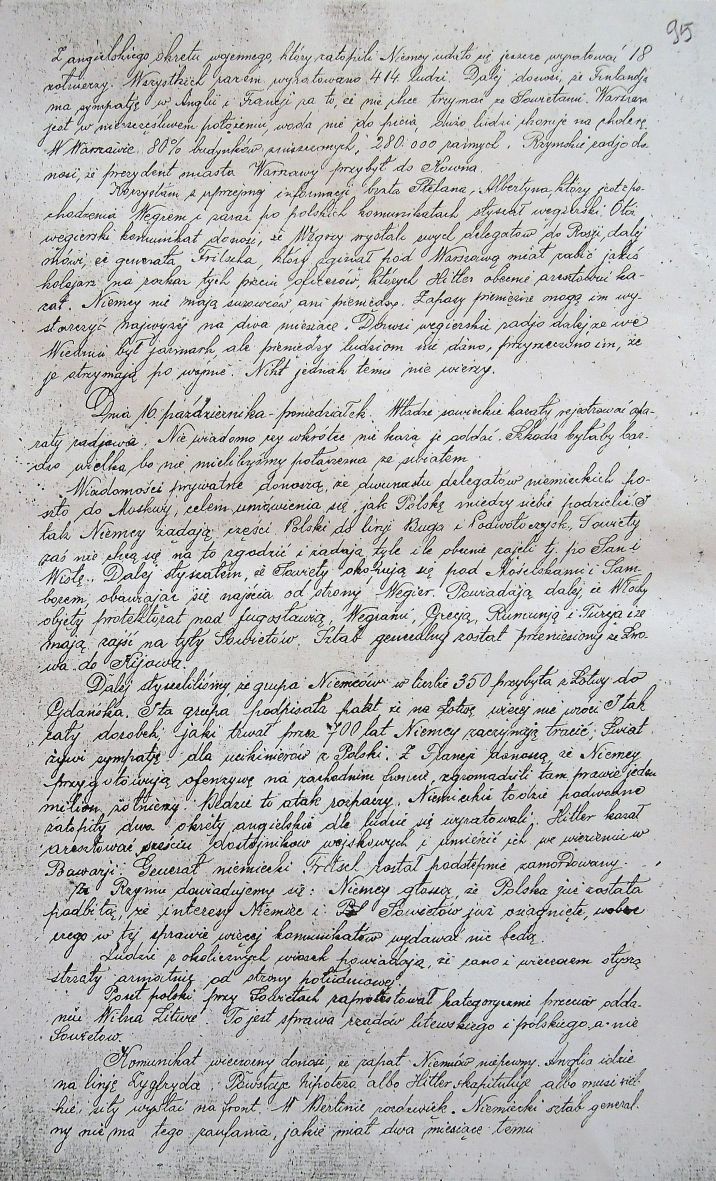 95
Z angielskiego okrętu wojennego, który zatopili Niemcy udało się jeszcze wyratować 18
żołnierzy. Wszystkich razem wyratowano 414 ludzi. Dalej donosi, że Finlandja
ma sympatję w Anglii i Francji za to, że nie chce trzymać ze Sowietami. Warszawa
jest w nieszczęśliwem położeniu, woda nie do picia dużo ludzi choruje na cholerę
W Warszawie 80% budynków zniszczonych, 280.000 rannych. Rzymskie radjo do-
nosi, że prezydent miasta Warszawy przybył do Kowna.
Korzystam z uprzejmej informacji brata Stefana, Albertyna który jest z po-
chodzenia Węgrem i zaraz po polskich komunikatach słyszał węgierski. Otóż
węgierski komunikat donosi, że Węgrzy wysłali swych delegatów do Rosji, dalej
mówi, że generała Fritscha, który zginął pod Warszawą miał zabić jakiś
kolejarz na rozkaz tych pięciu oficerów, których Hitler obecnie aresztować ka-
zał. Niemcy nie mają surowców ani pieniędzy. Zapasy pieniężne mogą im wy-
starczyć najwyżej na dwa miesiące. Donosi węgierskie radjo dalej że we
Wiedniu był jarmark, ale pieniędzy ludziom nie dano, przyrzeczono im, że
je otrzymają po wojnie. Nikt jednak temu nie wierzy.
Dnia 16 października - poniedziałek. Władze sowieckie kazały rejestrować apa-
raty radjowe. Nie wiadomo czy wkrótce nie każą je oddać. Szkoda byłaby bar-
dzo wielka bo nie mielibyśmy połączenia ze światem
Wiadomości prywatne donoszą, że dwunastu delegatów niemieckich po-
szło do Moskwy, celem umówienia się, jak Polskę między siebie podzielić I
tak Niemcy żądają części Polski do linji Buga i Podwołoczysk, Sowiety
zaś nie chcą się na to zgodzić i żądają tyle ile obecnie zajęli tj. po San i
Wisłę. Dalej słyszałem, że Sowiety okopują się pod Mościskami i Sam-
borem, obawiając się najścia od strony Węgier. Powiadają dalej że Włochy
objęły protektorat nad Jugosławią, Węgrami, Grecją, Rumunją i Turcją i że
mają zajść na tyły Sowietów. Sztab generalny został przeniesiony ze Lwo-
wa do Kijowa.
Dalej słyszeliśmy że grupa Niemców w liczbie 350 przybyła z Łotwy do
Gdańska. I ta grupa podpisała pakt że na Łotwę więcej nie wróci I tak
cały dorobek, jaki trwał przez 700 lat Niemcy zaczynają tracić, Świat
żywi sympatję dla uciekinierów z Polski. Z Francji donoszą, że Niemcy
przygotowują ofenzywę na zachodnim froncie, zgromadzili tam prawie jeden
milion żołnierzy. Będzie to atak rozpaczy. Niemieckie łodzie podwodne
zatopiły dwa okręty angielskie ale ludzie się wyratowali. Hitler kazał
aresztować sześciu dostojników wojskowych i umieścić ich we więzieniu w
Bawarji. Generał niemiecki Fritsch został podstępnie zamordowany.
Z Rzymu dowiadujemy się: Niemcy głoszą że Polska już została
podbitą, że interesy Niemiec i Sowietów już osiągnięte, wobec
czego w tej sprawie więcej komunikatów wydawać nie będą.
Ludzie z okolicznych wiosek powiadają, że rano i wieczorem słyszą
strzały armatnie od strony południowej.
Poseł polski przy Sowietach zaprotestował kategorycznie przeciw odda-
niu Wilna Litwie. To jest sprawa rządów litewskiego i polskiego, a nie
Sowietow.
Komunikat wieczorny donosi, że zapał Niemców niepewny. Anglia idzie
na linję Zygfryda. Powstaje hipoteza albo Hitler skapituluje albo musi wiel-
kie siły wysłać na front. W Berlinie rozdźwięk. Niemiecki sztab general-
ny nie ma tego zaufania, jakie miał dwa miesiące temu